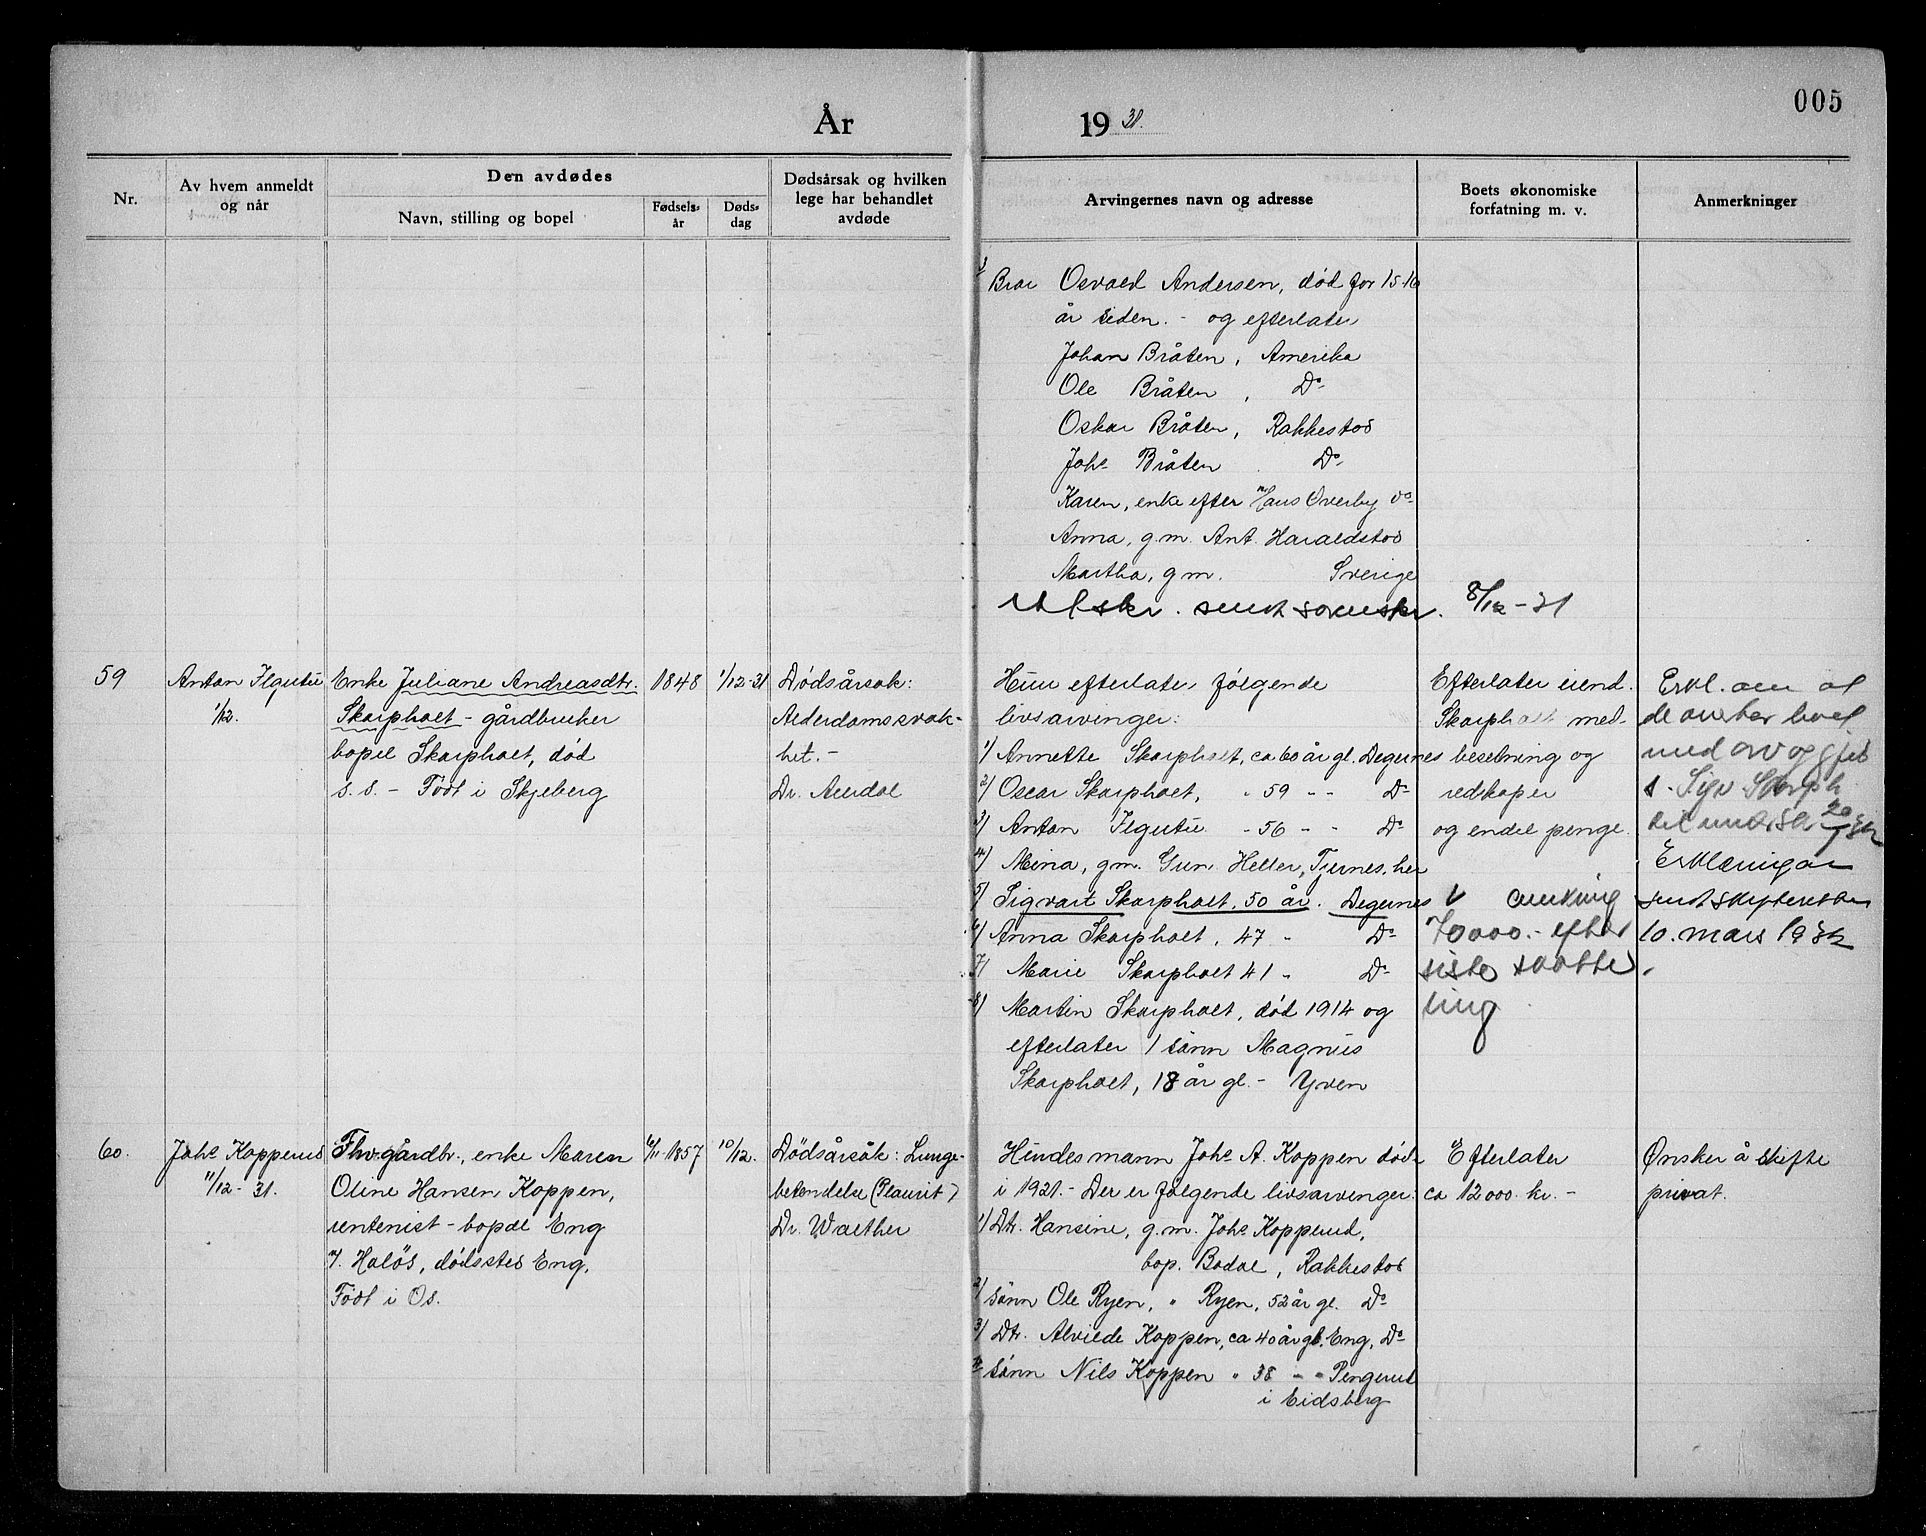 005
År 1931.
Nr.
Av hvem anmeldt
og når
Den avdødes
Navn, stilling og bopel
Fødsels-
år
Døds-
dag
Dødsårsak og hvilken
lege har behandlet
avdøde
Arvingernes navn og adresse
Boets økonomiske
forfatning m. v.
Anmerkninger
Bror Osvald Andersen, død for 15-16
år siden. - og efterlater
Johan Bråten, Amerika
Ole Bråten, Do
Oskar Bråten, Rakkestad
Johs Bråten Do
Karen, enke efter Hans Overby do
Anna, g.m. Ant. Haraldstad
Martha, g.m. Sverige
Utskr. sendt sorenskr. 8/12-31
59
Anton
1/12.
Enke Juliane Andreasdtr.
Skarpholt - gårdbruker
bopel Skarpholt, død
s. s. - Født i Skjeberg
1848
1/12-31
Dødsårsak:
Alderdomssvak-
het. -
Dr.
Hun efterlater følgende
livsarvinger:
1) Annette Skarpholt, ca 60 år gl. Degernes
2) Oscar Skarpholt, " 59 - - Do
3) Anton - 56 - - Do
4) Mina, g.m. Gun. Heller, her
5) Sigvart Skarpholt, 50 år. Degernes
6) Anna Skarpholt, 47 - Do
7) Marie Skarpholt 41 " Do
8) Martin Skarpholt, død 1914 og
efterlater 1 sønn Magnus
Skarpholt, 18 år gl. - Yven
Efterlater eiend.
Skarpholt med
besetning og
redskaper
og endel penge.
70000.- efter
siste skatte
ling
Erkl. om at
de overtar boet
med arv og gjeld
Erklæringen
sendt skifteretten
10. mars 1932
60.
Johs Kopperud
11/12-31.
Fhv. gårdbr., enke Maren
Oline Hansen Koppen,
rentenist - bopæl Eng
dødssted Eng.
Født i Os.
6/11-1857
10/12.
Dødsårsåk: Lunge-
betendelse (Plaurit)
Dr. Walther
Hindes mann Johs A. Koppen død
i 1921. - Der er følgende livsarvinger:
1) Dtr. Hansine, g.m. Johs Kopperud,
bop. Bodal, Rakkestad
2) sønn Ole Ryen, " Ryen, 52 år gl. Do
3) Dtr. Alvilde Koppen, ca 40 år gl. Eng, Do
4) sønn Nils Koppen " 38 " " Pengerud
i Eidsberg
Efterlater
ca 12000 kr. -
Ønsker å skifte
privat.